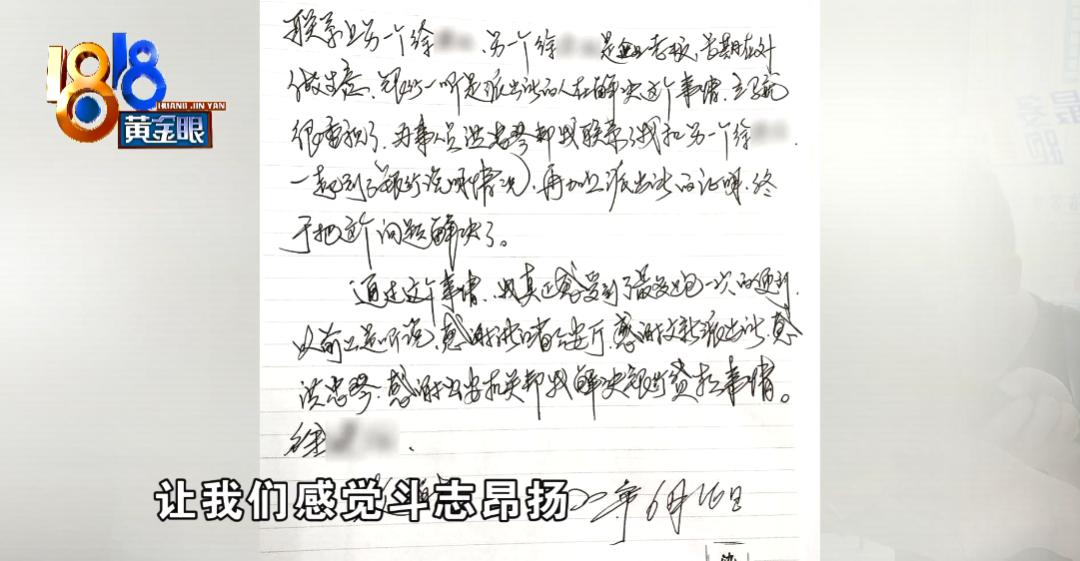 1818
HUANG JIN YAN
黄金眼
联系上另一个徐 、另一个徐 是 李 、长期在外
做生意、银行一听是派出所的人在解决这个事情、立马就
很重视了、办事人员洪忠琴帮我联系了我和另一个徐
一起到了银行说明情况、再加上派出所的证明、终
于把这个问题解决了。
通过这个事情、我真正感受到了最多跑一次的便利、
以前只是听说、感谢浙江省公安厅、感谢文新派出所、感
洪忠琴、感谢公安机关帮我解决银行贷款事情。
徐 、
年6月16日
让我们感觉斗志昂扬